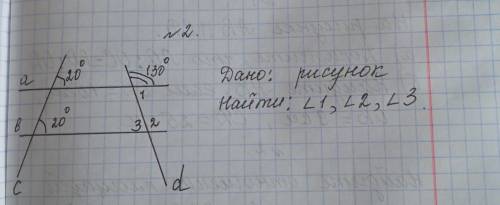 №2.
a 20° 130°
Дано: рисунок
1
Найти: ∠1, ∠2, ∠3.
в 20° 3 2
c d